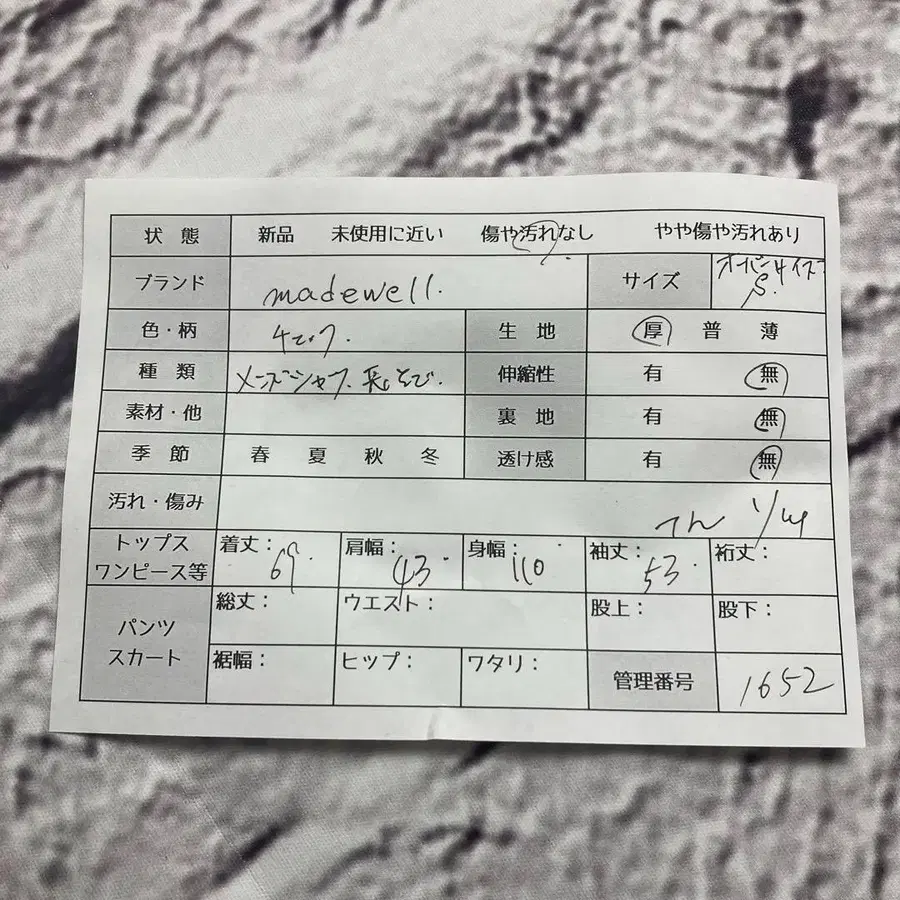 状態 新品 未使用に近い 傷や汚れなし やや傷や汚れあり
ブランド madewell. サイズ オーバーサイズ S.
色・柄 チェック. 生地 厚 普 薄
種類 メンズシャツ. 長そで. 伸縮性 有 無
素材・他 裏地 有 無
季節 春 夏 秋 冬 透け感 有 無
汚れ・傷み
トップス ワンピース等 着丈: 69. 肩幅: 43. 身幅: 110 袖丈: 53. 裄丈:
パンツ スカート 総丈: ウエスト: 股上: 股下:
裾幅: ヒップ: ワタリ: 管理番号 1652